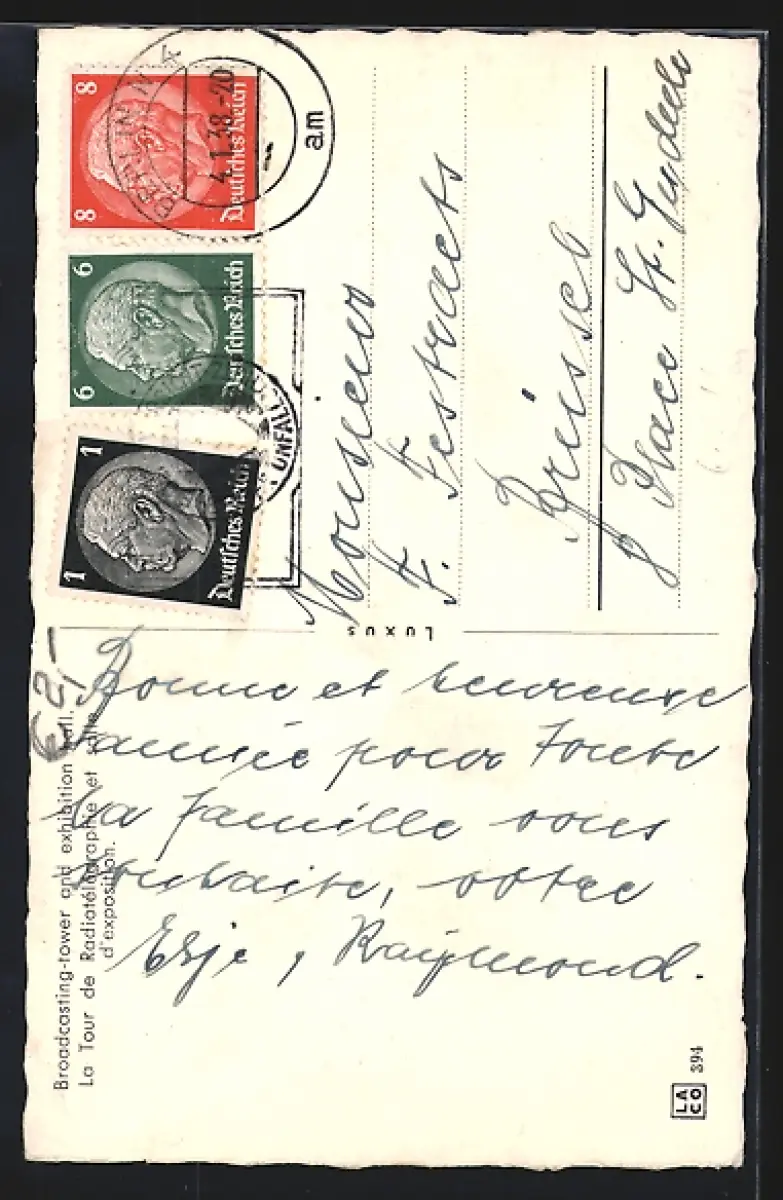 Broadcasting-tower and exhibition hall.
La Tour de Radiotélégraphie et salle
d'exposition.
€ 2,-
Bonne et heureuse
année pour toute
la famille vous
souhaite, votre
Raymond.
Luxus
8 8
Deutsches Reich
6 6
Deutsches Reich
1 1
Deutsches Reich
BERLIN N 4
4.1.38.-20
am
UNFALL
Monsieur
F. Festraets
Brüssel
8 Place St. Gudule
LACO
394